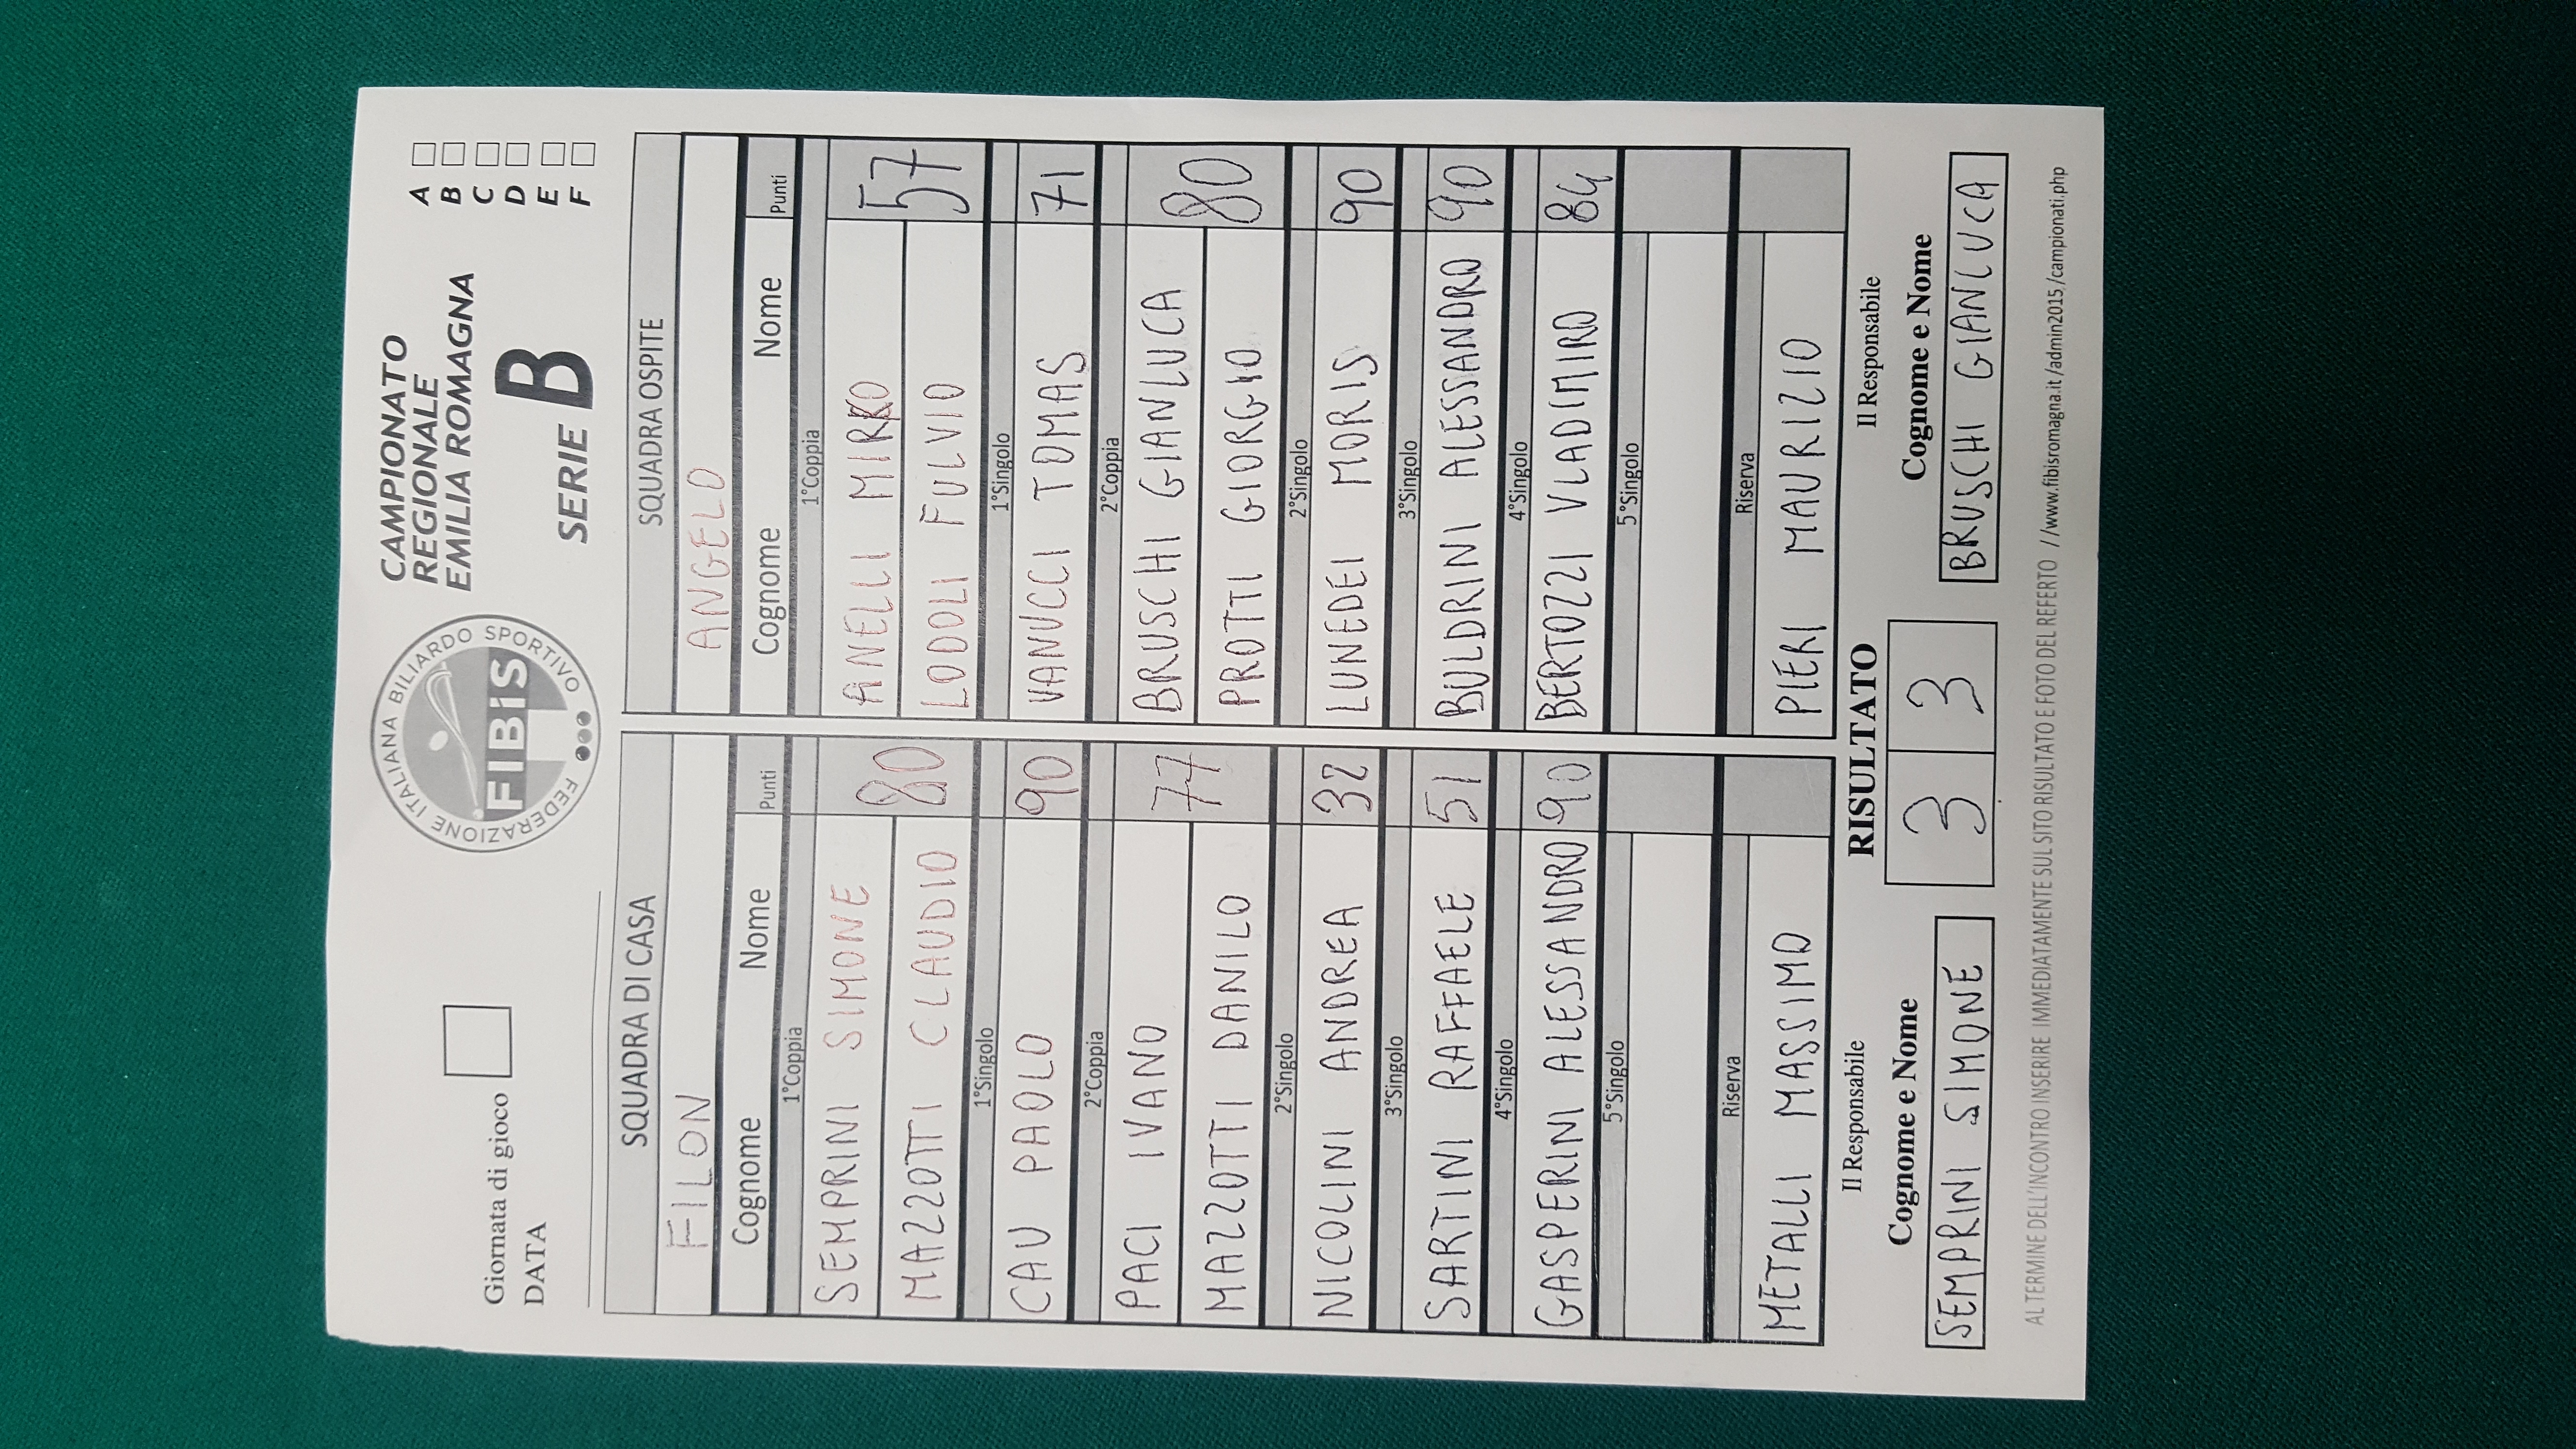 Giornata di gioco
DATA
FEDERAZIONE ITALIANA BILIARDO SPORTIVO
FIBiS
CAMPIONATO
REGIONALE
EMILIA ROMAGNA
SERIE B
A
B
C
D
E
F
SQUADRA DI CASA
FILON
Cognome Nome Punti
1°Coppia
SEMPRINI SIMONE
80
MAZZOTTI CLAUDIO
1°Singolo
CAU PAOLO 90
2°Coppia
PACI IVANO
77
MAZZOTTI DANILO
2°Singolo
NICOLINI ANDREA 32
3°Singolo
SARTINI RAFFAELE 51
4°Singolo
GASPERINI ALESSANDRO 90
5°Singolo
Riserva
METALLI MASSIMO
SQUADRA OSPITE
ANGELO
Cognome Nome Punti
1°Coppia
ANELLI MIRKO
57
LODOLI FULVIO
1°Singolo
VANUCCI TOMAS 71
2°Coppia
BRUSCHI GIANLUCA
80
PROTTI GIORGIO
2°Singolo
LUNEDEI MORIS 90
3°Singolo
BULDRINI ALESSANDRO 90
4°Singolo
BERTOZZI VLADIMIRO 84
5°Singolo
Riserva
PIERI MAURIZIO
Il Responsabile
Cognome e Nome
SEMPRINI SIMONE
RISULTATO
3 3
Il Responsabile
Cognome e Nome
BRUSCHI GIANLUCA
AL TERMINE DELL'INCONTRO INSERIRE IMMEDIATAMENTE SUL SITO RISULTATO E FOTO DEL REFERTO //www.fibisromagna.it/admin2015/campionati.php